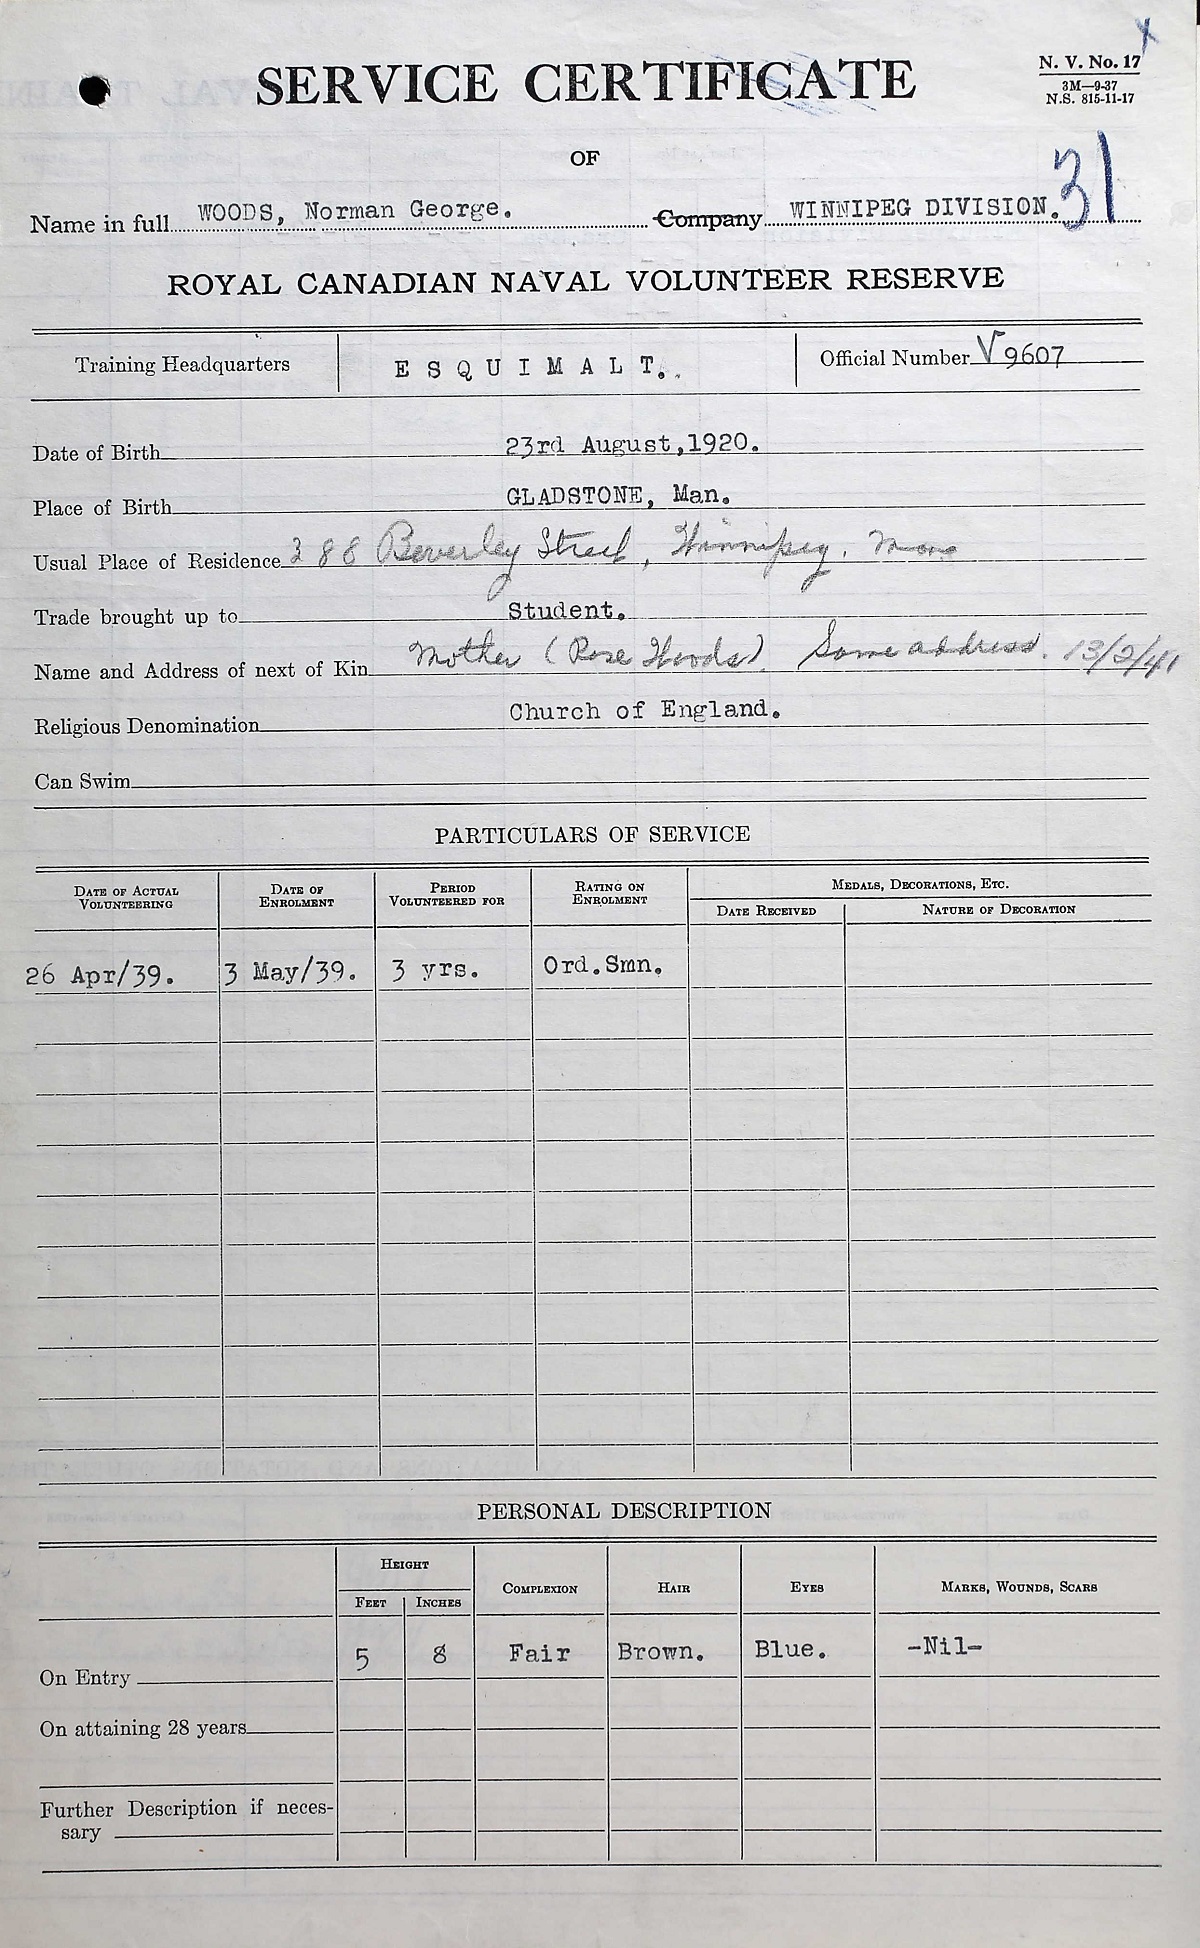 N. V. No. 17
3M—9-37
N.S. 815-11-17
SERVICE CERTIFICATE
OF
31
Name in full WOODS, Norman George. Company WINNIPEG DIVISION.
ROYAL CANADIAN NAVAL VOLUNTEER RESERVE
Training Headquarters ESQUIMALT. Official Number V 9607
Date of Birth 23rd August,1920.
Place of Birth GLADSTONE, Man.
Usual Place of Residence 388 Beverley Street, Winnipeg. Man
Trade brought up to Student.
Name and Address of next of Kin Mother (Rose Woods). Same address. 13/2/41
Religious Denomination Church of England.
Can Swim
PARTICULARS OF SERVICE
DATE OF ACTUAL VOLUNTEERING DATE OF ENROLMENT PERIOD VOLUNTEERED FOR RATING ON ENROLMENT MEDALS, DECORATIONS, ETC.
DATE RECEIVED NATURE OF DECORATION
26 Apr/39. 3 May/39. 3 yrs. Ord.Smn.
PERSONAL DESCRIPTION
HEIGHT COMPLEXION HAIR EYES MARKS, WOUNDS, SCARS
FEET INCHES
On Entry 5 8 Fair Brown. Blue. -Nil-
On attaining 28 years
Further Description if neces-
sary